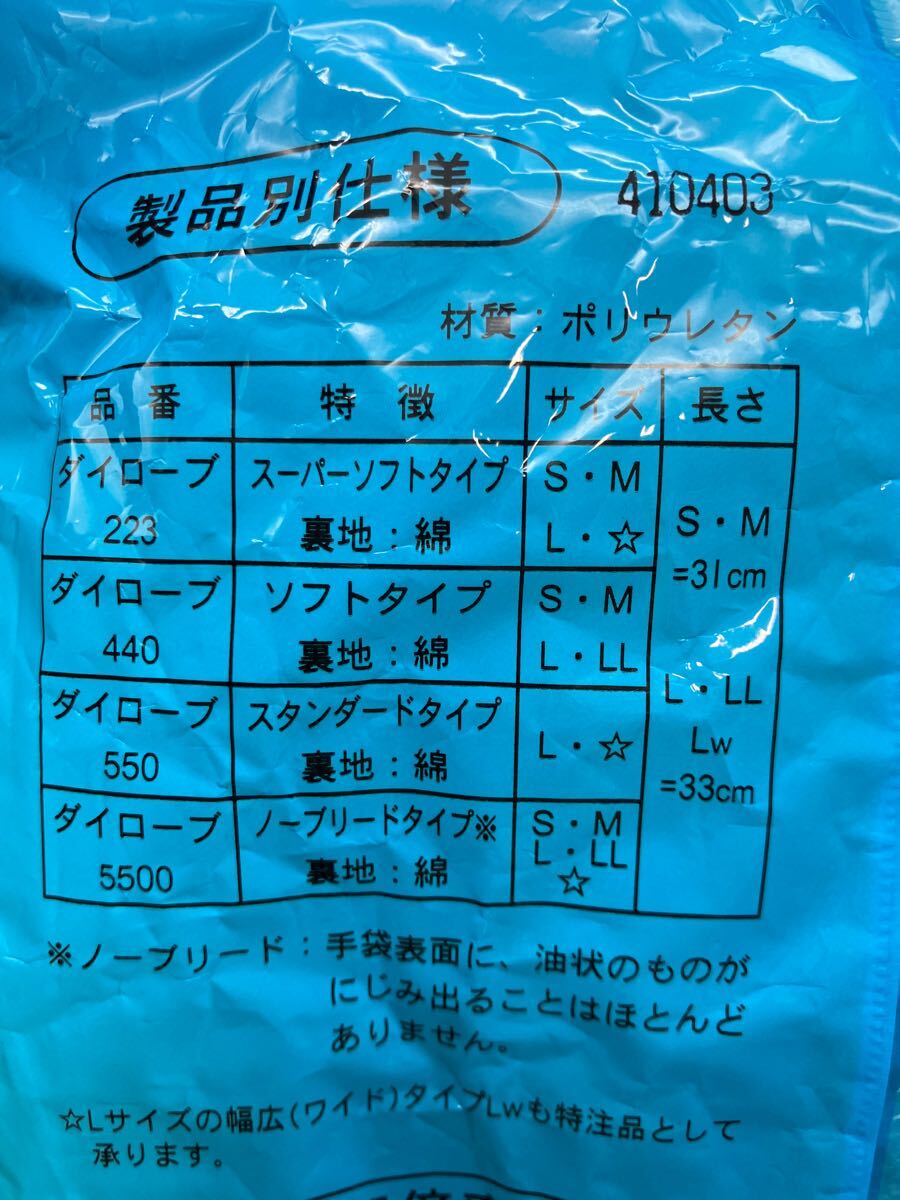 製品別仕様
410403
材質：ポリウレタン
品番 特徴 サイズ 長さ
ダイローブ
223
スーパーソフトタイプ
裏地：綿
S・M
L・☆
ダイローブ
440
ソフトタイプ
裏地：綿
S・M
L・LL
ダイローブ
550
スタンダードタイプ
裏地：綿
L・☆
ダイローブ
5500
ノーブリードタイプ※
裏地：綿
S・M
L・LL
☆
S・M
=31cm
L・LL
Lw
=33cm
※ノーブリード：手袋表面に、油状のものが
にじみ出ることはほとんど
ありません。
☆Lサイズの幅広(ワイド)タイプLwも特注品として
承ります。